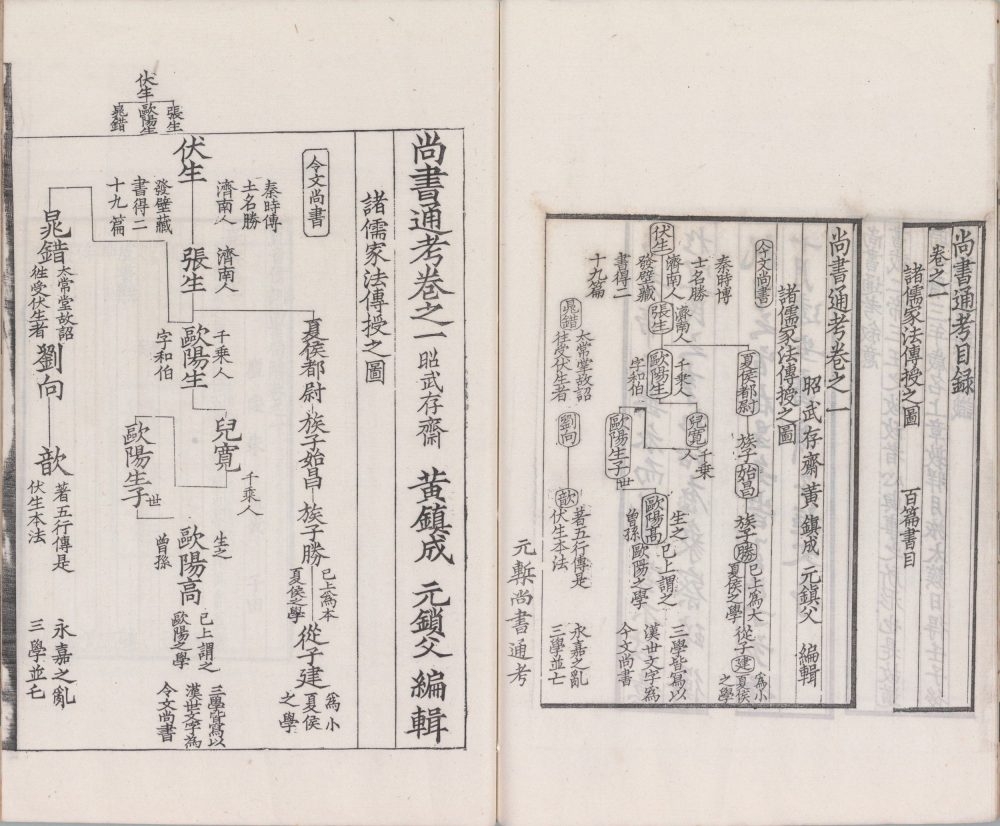 尚書通考目録
卷之一
諸儒家法傳授之圖
百篇書目
尚書通考卷之一
昭武存齋 黃 鎮成 元鎮父 編輯
諸儒家法傳授之圖
今文尚書
伏生
秦時博
士名勝
濟南人
發壁藏
書得二
十九篇
張生
濟南人
夏侯都尉
族子始昌
族子勝
已上爲大
夏侯之學
從子建
爲小
夏侯
之學
歐陽生
千乗人
字和伯
兒寬
千乗
人
歐陽生子
世
歐陽高
生之
曾孫
已上謂之
歐陽之學
三學皆寫以
漢世文字爲
今文尚書
晁錯
太常掌故詔
往受伏生者
劉向
歆
著五行傳是
伏生本法
永嘉之亂
三學並亡
元槧尚書通考
伏生
張生
歐陽生
晁錯
尚書通考卷之一 昭武存齋 黃鎮成 元鎖父 編輯
諸儒家法傳授之圖
今文尚書
伏生
秦時傳
土名勝
濟南人
發壁藏
書得二
十九篇
張生
濟南人
夏侯都尉
族子始昌
族子勝
已上爲本
夏侯之學
從子建
爲小
夏侯
之學
歐陽生
千乗人
字和伯
兒寬
千乗人
歐陽生子
世
歐陽高
生之
曾孫
已上謂之
歐陽之學
三學皆寫以
漢世文字爲
今文尚書
晁錯
太常堂故詔
徃受伏生者
劉向
歆
著五行傳是
伏生本法
永嘉之亂
三學並乇